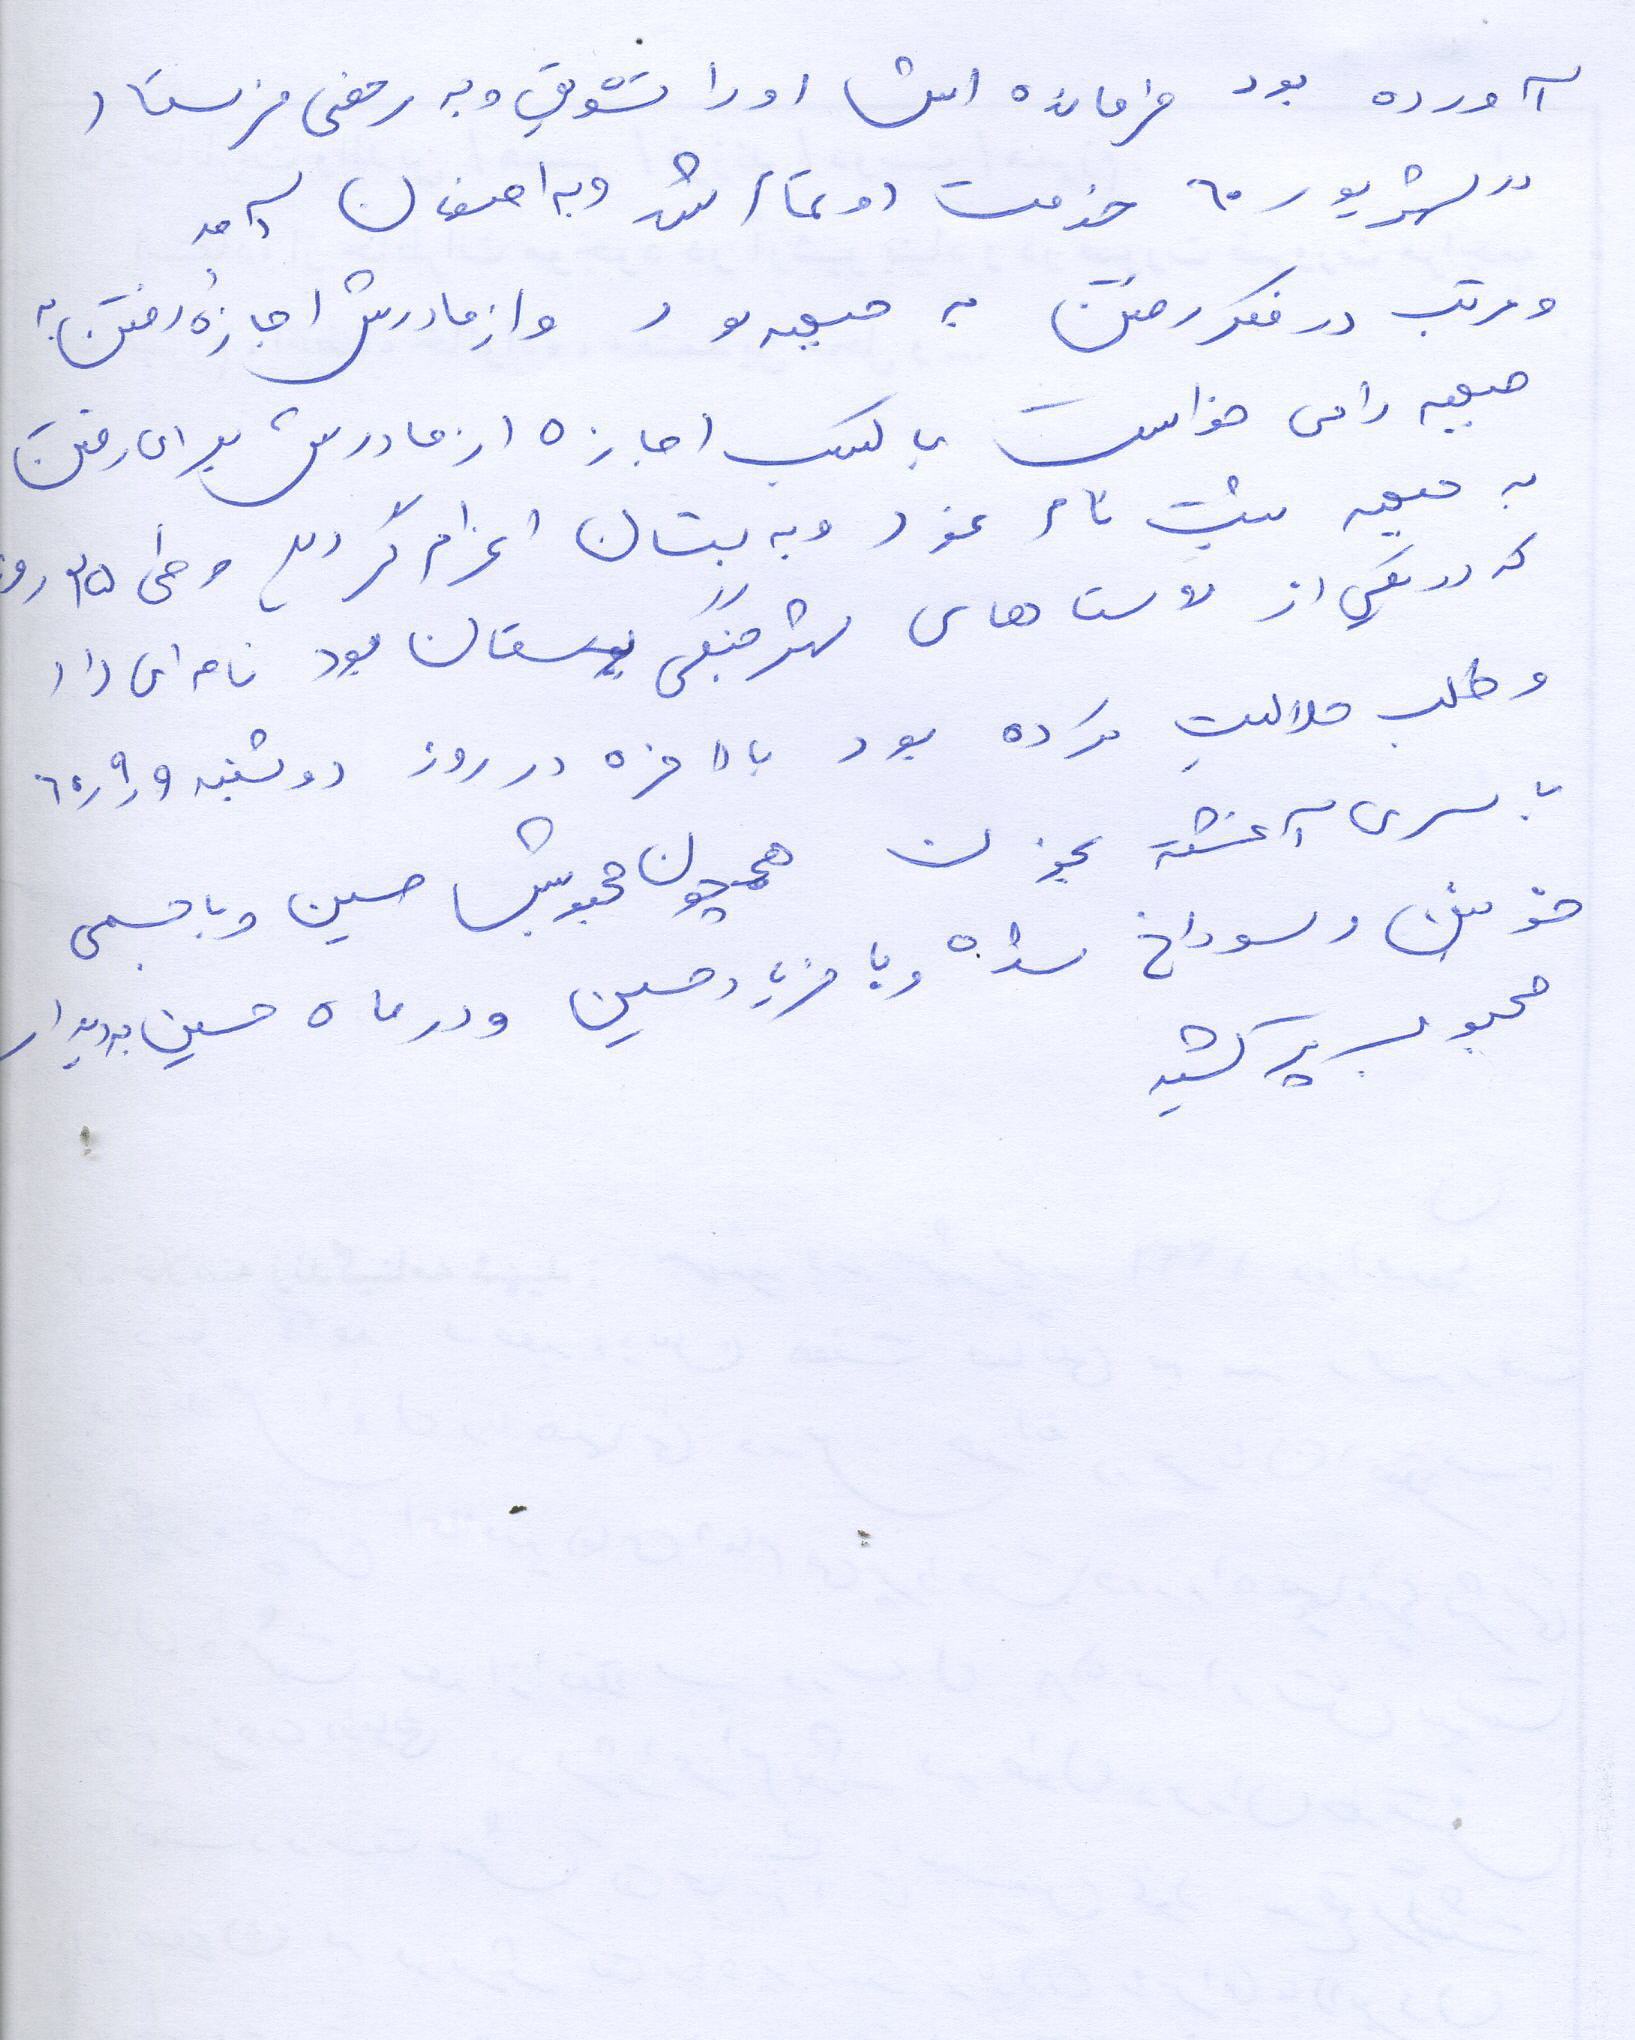 آورده بود فرمانده اش او را تشویق و به رخصی فرستاد
در شهریور ٦٠ خدمت او تمام شد و به اصفهان آمد
و مرتب در فکر رفتن به جبهه بود و از مادرش اجازهٔ رفتن به
جبهه را می خواست با کسب اجازه از مادرش برای رفتن
به جبهه ثبت نام نمود و به بستان اعزام گردید و طی ٢٥ روز
که در یکی از پست های شهر جنگی بستان بود نامه ای داد
و طلب حلالیت کرده بود بالاخره در روز دوشنبه ٩ر٩ر٦٠
با سری آغشته بخون همچون محبوبش حسین و با جسمی
خونین و سوراخ شده و با فریاد حسین و در ماه حسین بدیدار
محبوب پر کشید